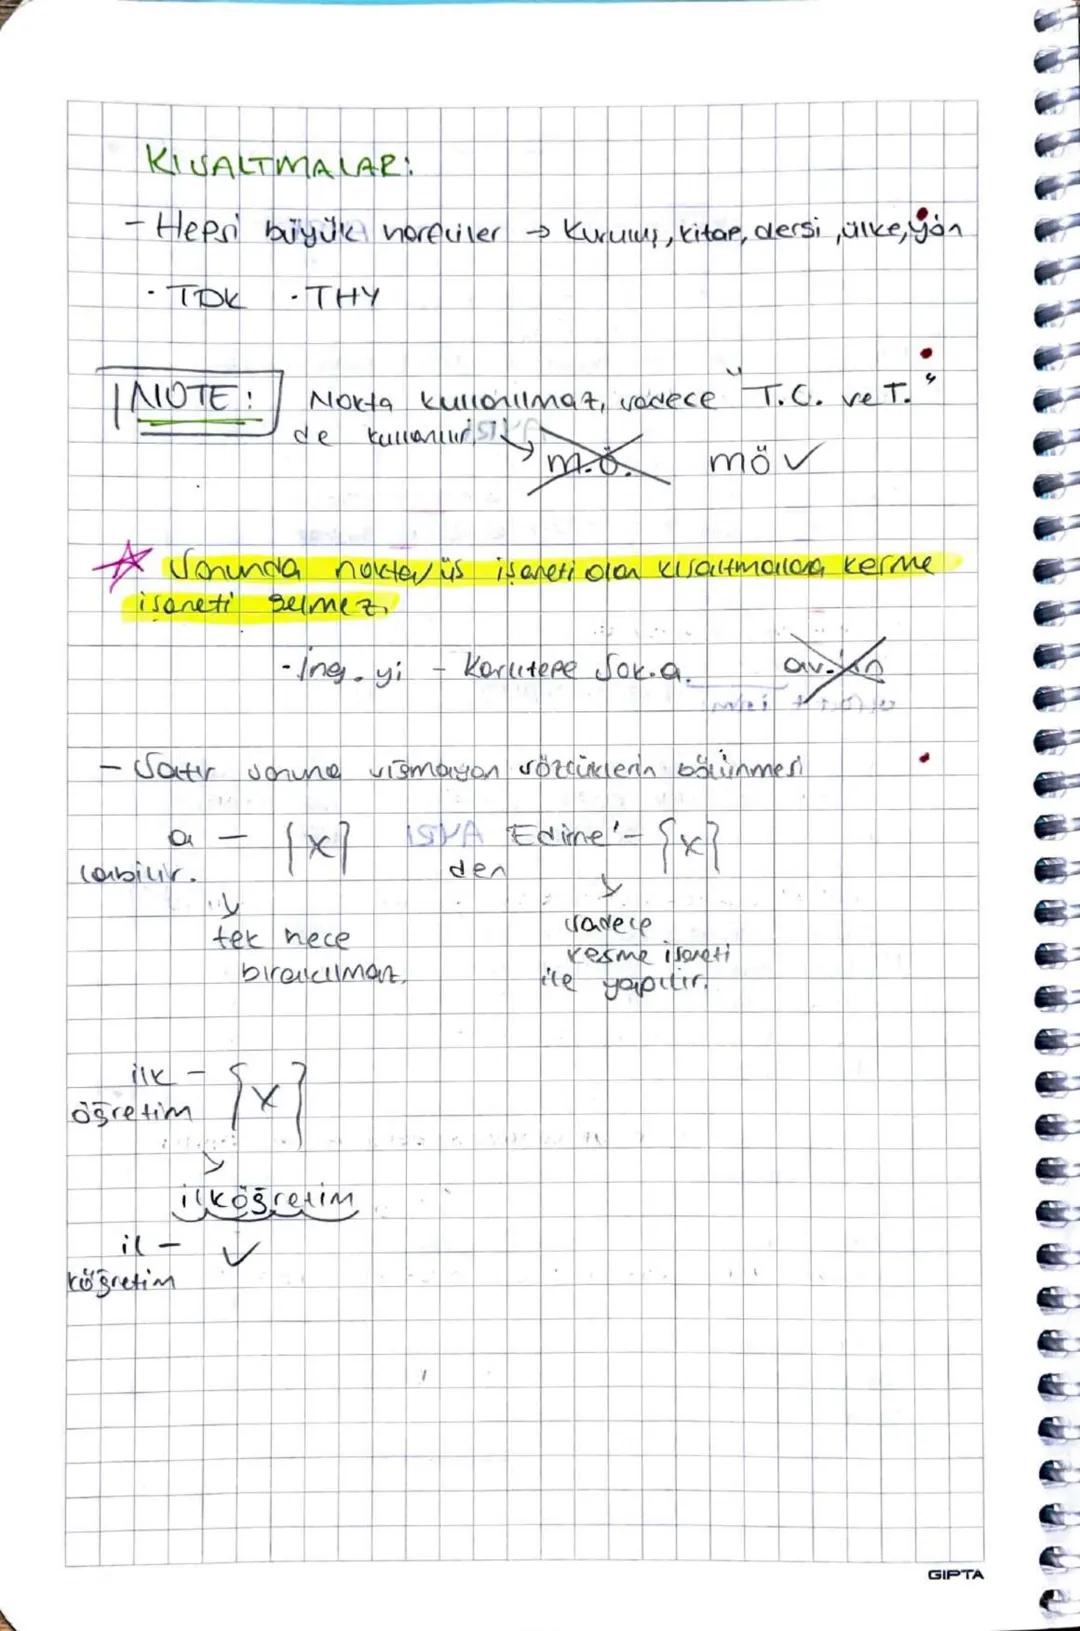 KISALTMALAR:
- Hepsi büyük harfliler → Kuruluş, kitap, dersi, ülke, yön
· TDK · THY
NOTE: Nokta kullanılmaz, sadece "T.C. ve T."
de kullanılır.
m.ö. mö ✓
☆ Sonunda nokta/üs işareti olan kısaltmalara kesme
işareti gelmez.
- İng. yi - Karlıtepe Sok.a. av.
- Satır sonuna sığmayan sözcüklerin bölünmesi
a - [x] Edirne'- [x]
labilir. den
tek hece sadece
bırakılmaz. kesme işareti
ile yapılır.
ilk - [x]
öğretim
ilköğretim
il - ✓
köğretim
GIPTA